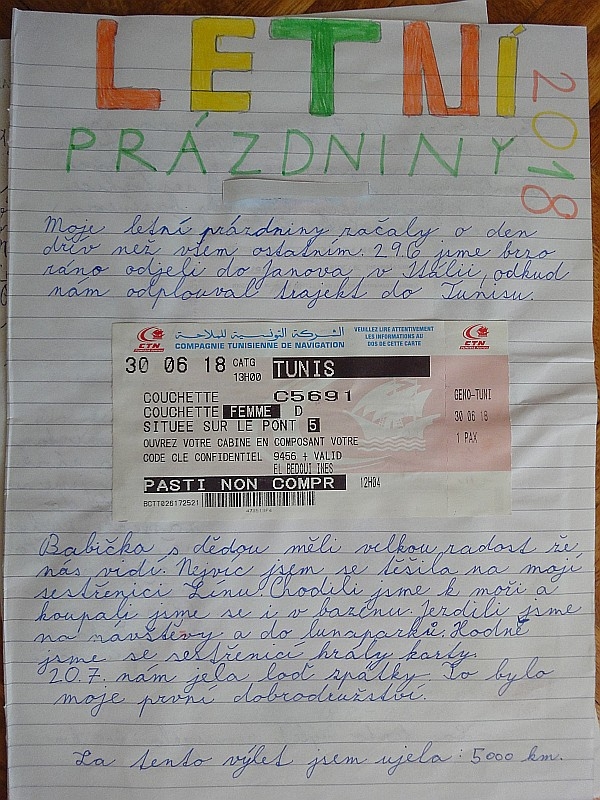 LETNÍ
2018
PRÁZDNINY
Moje letní prázdniny začaly o den
dřív než všem ostatním. 29.6 jsme brzo
ráno odjeli do Janova v Itálii, odkud
nám odplouval trajekt do Tunisu.
CTN
الشركة التونسية للملاحة
COMPAGNIE TUNISIENNE DE NAVIGATION
VEUILLEZ LIRE ATTENTIVEMENT
LES INFORMATIONS AU
DOS DE CETTE CARTE
CTN
30 06 18 CATG TUNIS
13H00
COUCHETTE C5691
COUCHETTE FEMME D
SITUEE SUR LE PONT 5
OUVREZ VOTRE CABINE EN COMPOSANT VOTRE
CODE CLE CONFIDENTIEL 9456 + VALID
EL BEDOUI INES
PASTI NON COMPR 12H04
BCTT026172521
GENO-TUNI
30 06 18
1 PAX
Babička s dědou měli velkou radost že
nás vidí. Nejvíc jsem se těšila na moji
sestřenici Linu. Chodili jsme k moři a
koupali jsme se i v bazénu. Jezdili jsme
na návštěvy a do lunaparků. Hodně
jsme se sestřenicí hrály karty.
20.7. nám jela loď zpátky. To bylo
moje první dobrodružství.
Za tento výlet jsem ujela: 5000 km.